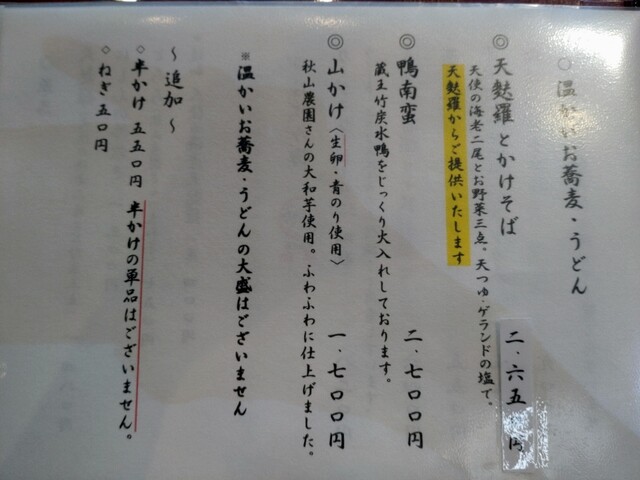 ◇温かいお蕎麦・うどん
◎天麩羅とかけそば 二・六五 円
天使の海老二尾とお野菜三点。天つゆ・ゲランドの塩で。
天麩羅からご提供いたします
◎鴨南蛮 二・七〇〇円
蔵王竹炭水鴨をじっくり火入れしております。
◎山かけ〈生卵・青のり使用〉 一・七〇〇円
秋山農園さんの大和芋使用。ふわふわに仕上げました。
※温かいお蕎麦・うどんの大盛はございません
～追加～
◇半かけ 五五〇円 半かけの単品はございません。
◇ねぎ五〇円